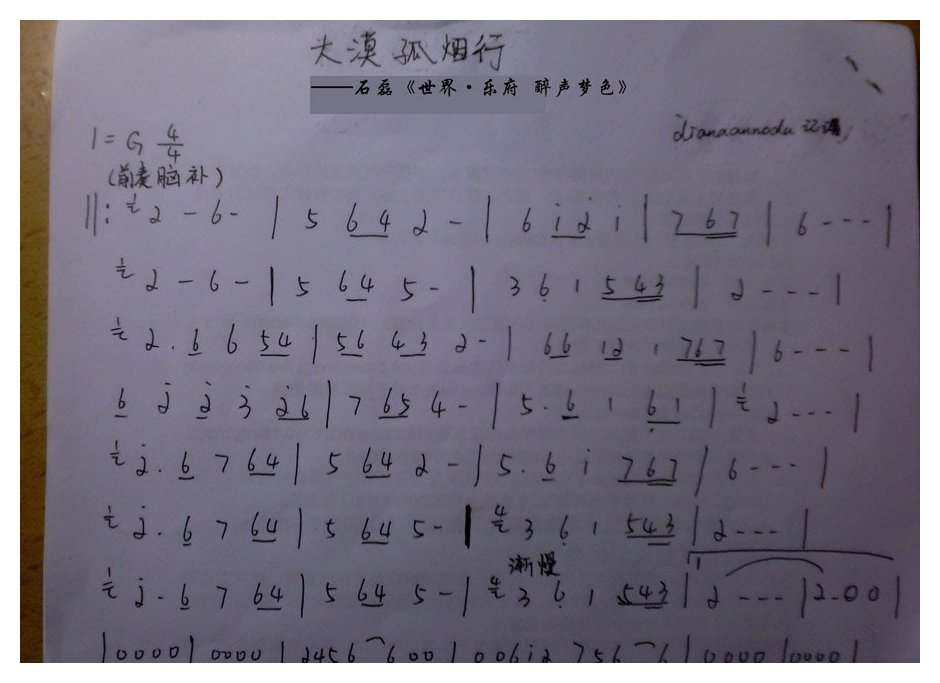 大漠孤烟行
——石磊《世界·乐府 醉声梦色》
dianaannodu 记谱
1=G 4/4
(前奏脑补)
||: 2 - 6 - | 5 6 4 2 - | 6 i 2 i | 7 6 7 | 6 - - - |
2 - 6 - | 5 6 4 5 - | 3 6 1 5 4 3 | 2 - - - |
2 . 6 6 5 4 | 5 6 4 3 2 - | 6 6 1 2 1 7 6 7 | 6 - - - |
6 2 2 3 2 6 | 7 6 5 4 - | 5 . 6 1 6 1 | 2 - - - |
2 . 6 7 6 4 | 5 6 4 2 - | 5 . 6 i 7 6 7 | 6 - - - |
2 . 6 7 6 4 | 5 6 4 5 - | 3 6 1 5 4 3 | 2 - - - |
渐慢
2 - 6 7 6 4 | 5 6 4 5 - | 3 6 1 5 4 3 | 2 - - - | 2 - 0 0 |
| 0 0 0 0 | 0 0 0 0 | 2 4 5 6 6 0 0 | 0 0 6 i 2 7 5 6 6 | 0 0 0 0 | 0 0 0 0 |